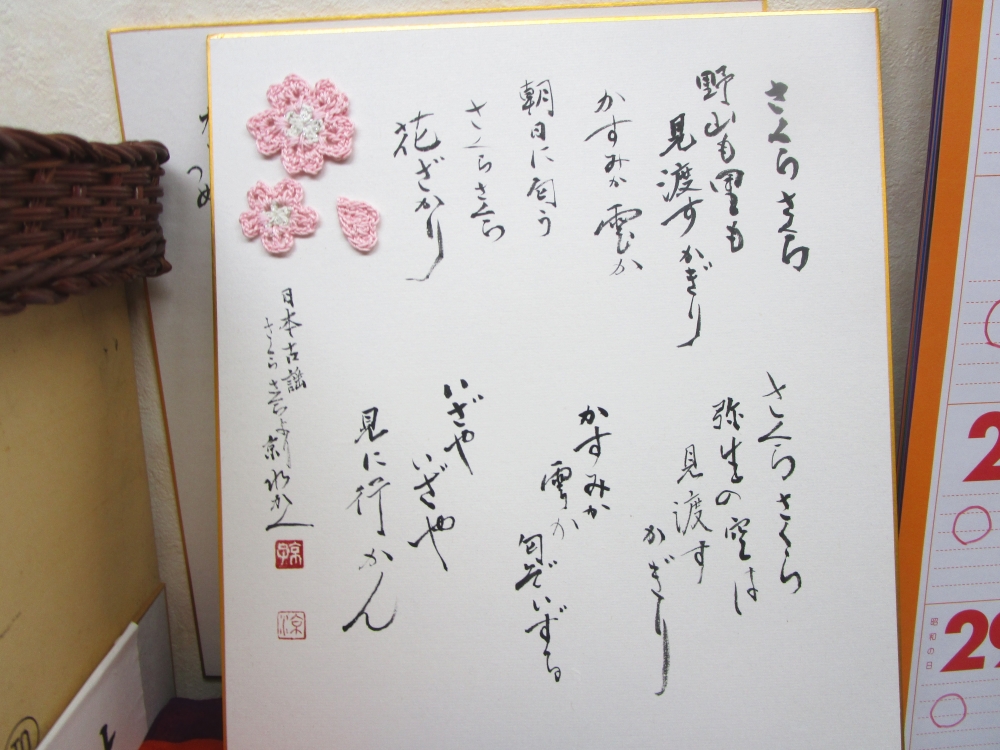 さくらさくら
野山も里も
見渡すかぎり
かすみか雲か
朝日に匂う
さくらさくら
花ざかり
さくらさくら
弥生の空は
見渡す
かぎり
かすみか
雲か
匂ぞいずる
いざや
いざや
見に行かん
日本古謡
さくらさくらより
2
29
昭和の日